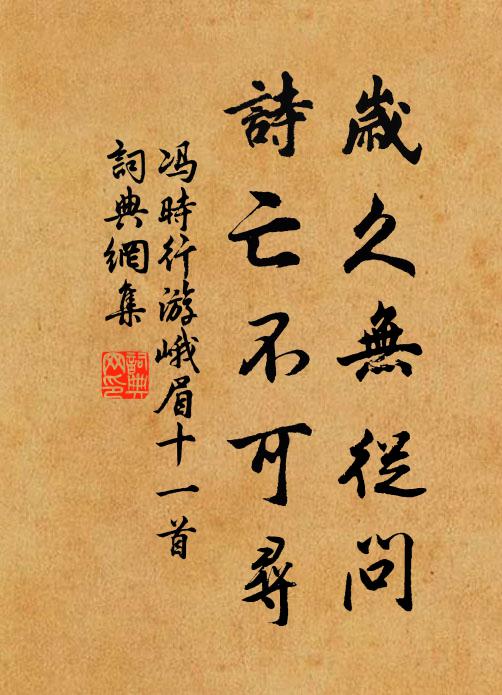 歲久無從問
詩亡不可尋
冯時行游峨眉十一首
詞典網集
詞典
网印